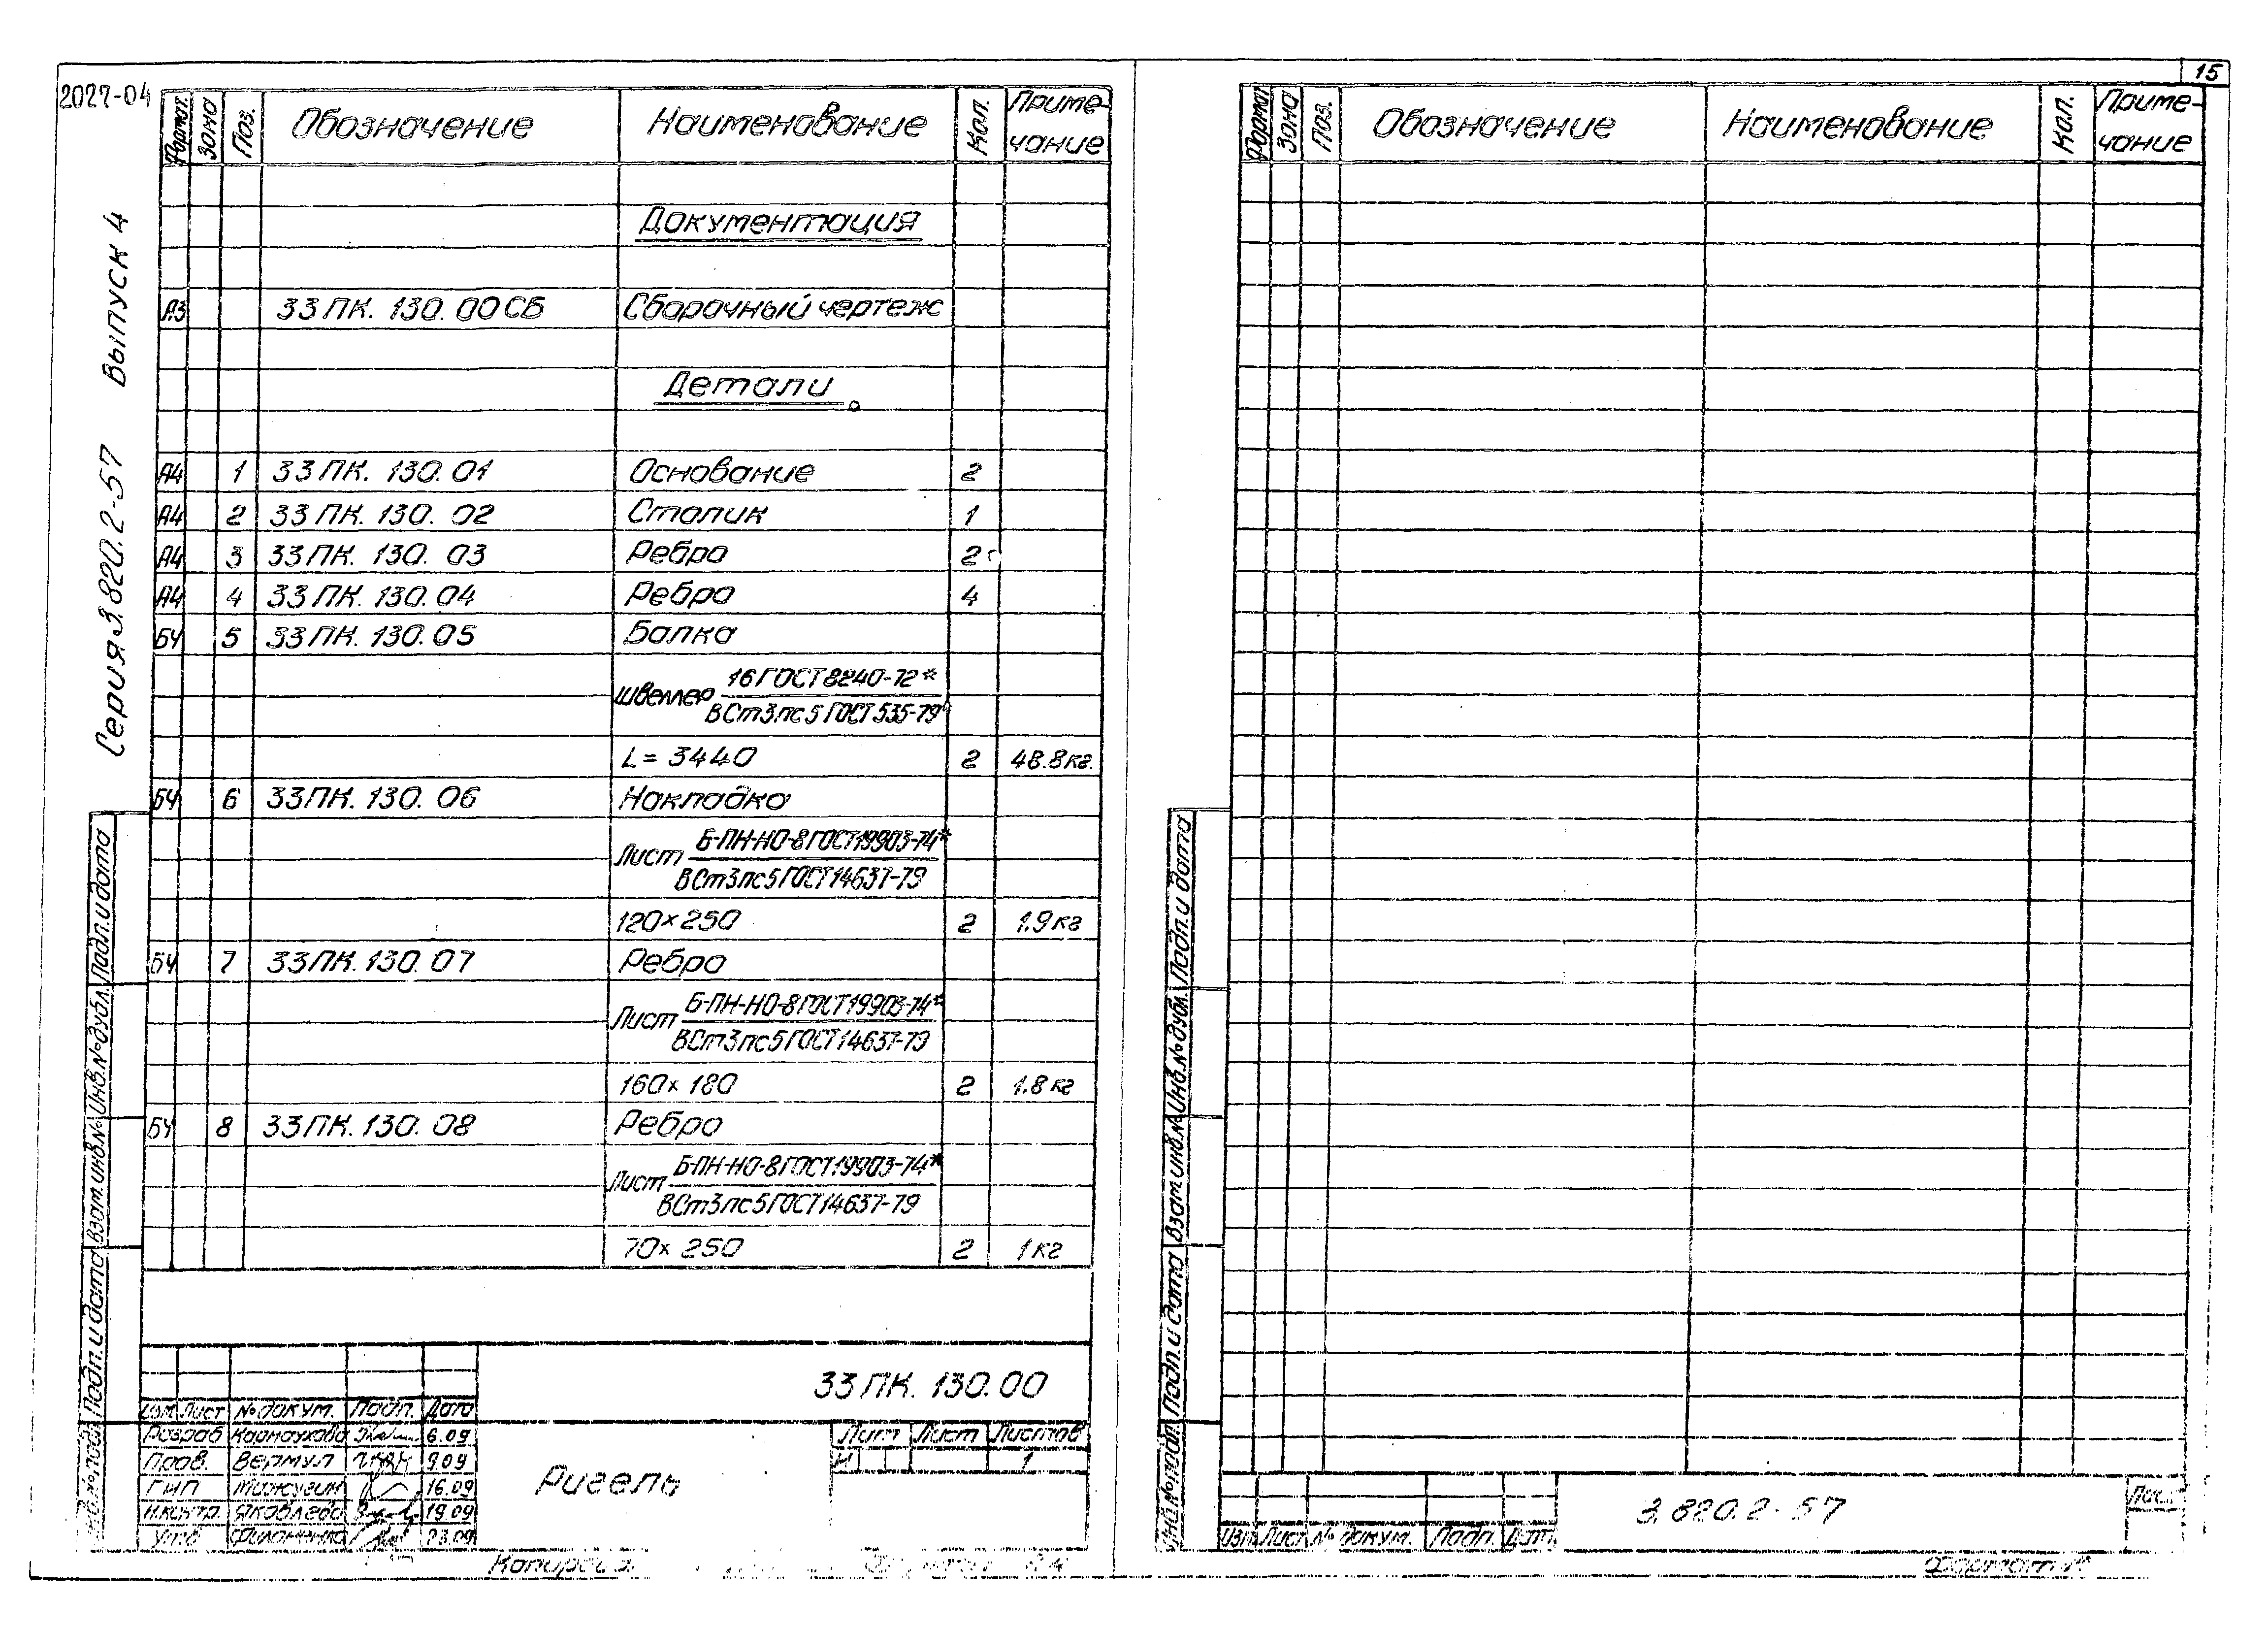 15
2027-04
Серия 3.820.2-57 Выпуск 4
Формат. Зона Поз. Обозначение Наименование Кол. Приме-
чание
Документация
А3 33ПК. 130. 00СБ Сборочный чертеж
Детали
А4 1 33ПК. 130. 01 Основание 2
А4 2 33ПК. 130. 02 Столик 1
А4 3 33ПК. 130. 03 Ребро 2
А4 4 33ПК. 130. 04 Ребро 4
БЧ 5 33ПК. 130. 05 Балка
Швеллер 16 ГОСТ 8240-72*
ВСт3пс5 ГОСТ 535-79
L = 3440 2 48.8 кг.
БЧ 6 33ПК. 130. 06 Накладка
Лист Б-ПН-НО-8 ГОСТ 19903-74*
ВСт3пс5 ГОСТ 14637-79
120×250 2 1.9 кг
БЧ 7 33ПК. 130. 07 Ребро
Лист Б-ПН-НО-8 ГОСТ 19903-74*
ВСт3пс5 ГОСТ 14637-79
160×180 2 1.8 кг
БЧ 8 33ПК. 130. 08 Ребро
Лист Б-ПН-НО-8 ГОСТ 19903-74*
ВСт3пс5 ГОСТ 14637-79
70×250 2 1 кг
Подп. и дата
Инв.№ дубл.
Взам. инв.№
Подп. и дата
Инв.№ подл.
33ПК. 130. 00
Изм. Лист № докум. Подп. Дата
Разраб Карнаухова 6.09
Пров. Вермул 9.09
ГИП 16.09
Н.контр. Яковлева 19.09
Утв Филоненко 23.09
Ригель
Лит Лист Листов
И 1
Копировал
Формат Зона Поз. Обозначение Наименование Кол. Приме-
чание
Подп. и дата
Инв.№ дубл.
Взам. инв.№
Подп. и дата
Инв.№ подл.
Изм. Лист № докум. Подп. Дата
3.820.2-57
Лист
Формат